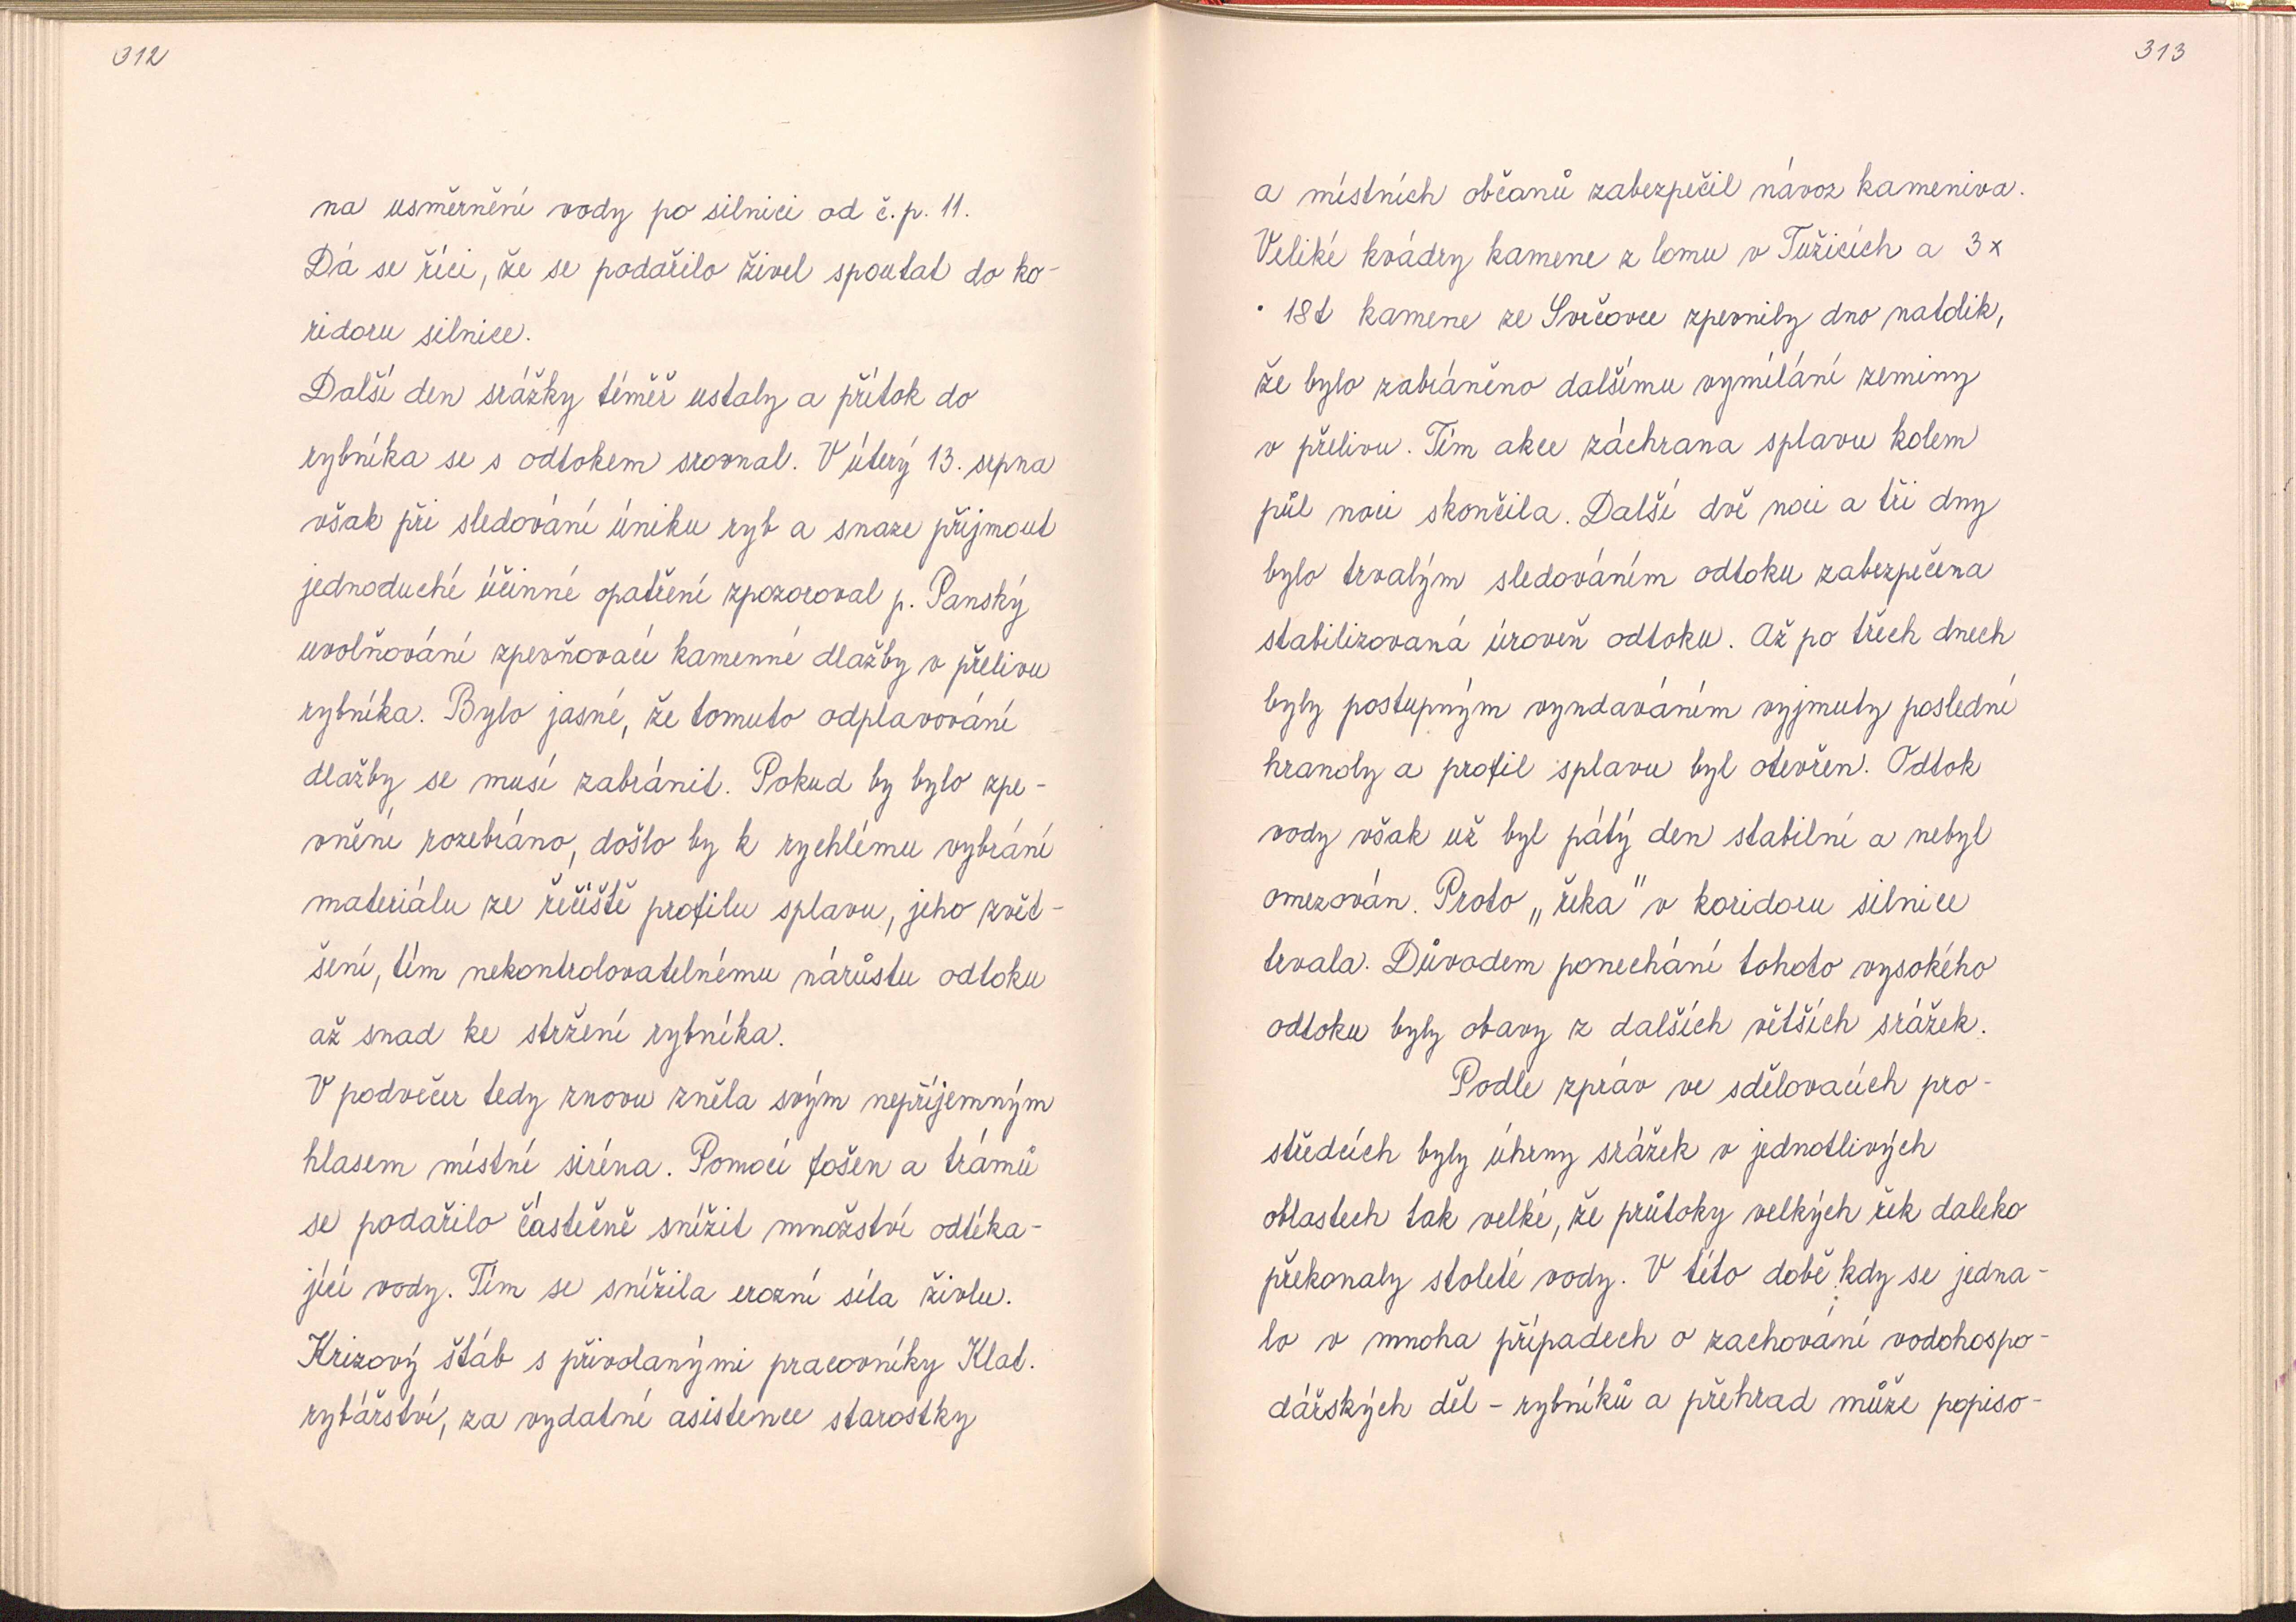 312
na usměrnění vody po silnici od č.p. 11.
Dá se říci, že se podařilo živel spoutat do ko-
ridoru silnice.
Další den srážky téměř ustaly a přítok do
rybníka se s odtokem srovnal. V úterý 13. srpna
však při sledování úniku ryb a snaze přijmout
jednoduché účinné opatření zpozoroval p. Panský
uvolňování zpevňovací kamenné dlažby v přelivu
rybníka. Bylo jasné, že tomuto odplavování
dlažby se musí zabránit. Pokud by bylo zpe-
vnění rozebráno, došlo by k rychlému vybrání
materiálu ze řečiště profilu splavu, jeho zvět-
šení, tím nekontrolovatelnému nárůstu odtoku
až snad ke stržení rybníka.
V podvečer tedy znovu zněla svým nepříjemným
hlasem místní siréna. Pomocí fošen a trámů
se podařilo částečně snížit množství odtéka-
jící vody. Tím se snížila erozní síla živlu.
Krizový štáb s přivolanými pracovníky Klat.
rybářství, za vydatné asistence starostky
313
a místních občanů zabezpečil návoz kameniva.
Veliké kvádry kamene z lomu v Tužicích a 3x
· 18t kamene ze Svrčovce zpevnily dno natolik,
že bylo zabráněno dalšímu vymílání zeminy
v přelivu. Tím akce záchrana splavu kolem
půl noci skončila. Další dvě noci a tři dny
bylo trvalým sledováním odtoku zabezpečena
stabilizovaná úroveň odtoku. Až po třech dnech
byly postupným vyndaváním vyjmuty poslední
hrandy a profil splavu byl otevřen. Odtok
vody však už byl pátý den stabilní a nebyl
omezován. Proto „řeka" v koridoru silnice
trvala. Důvodem ponechání tohoto vysokého
odtoku byly obavy z dalších větších srážek.
Podle zpráv ve sdělovacích pro-
středcích byly úhrny srážek v jednotlivých
oblastech tak velké, že průtoky velkých řek daleko
překonaly stoleté vody. V této době, kdy se jedna-
lo v mnoha případech o zachování vodohospo-
dářských děl - rybníků a přehrad může popiso-